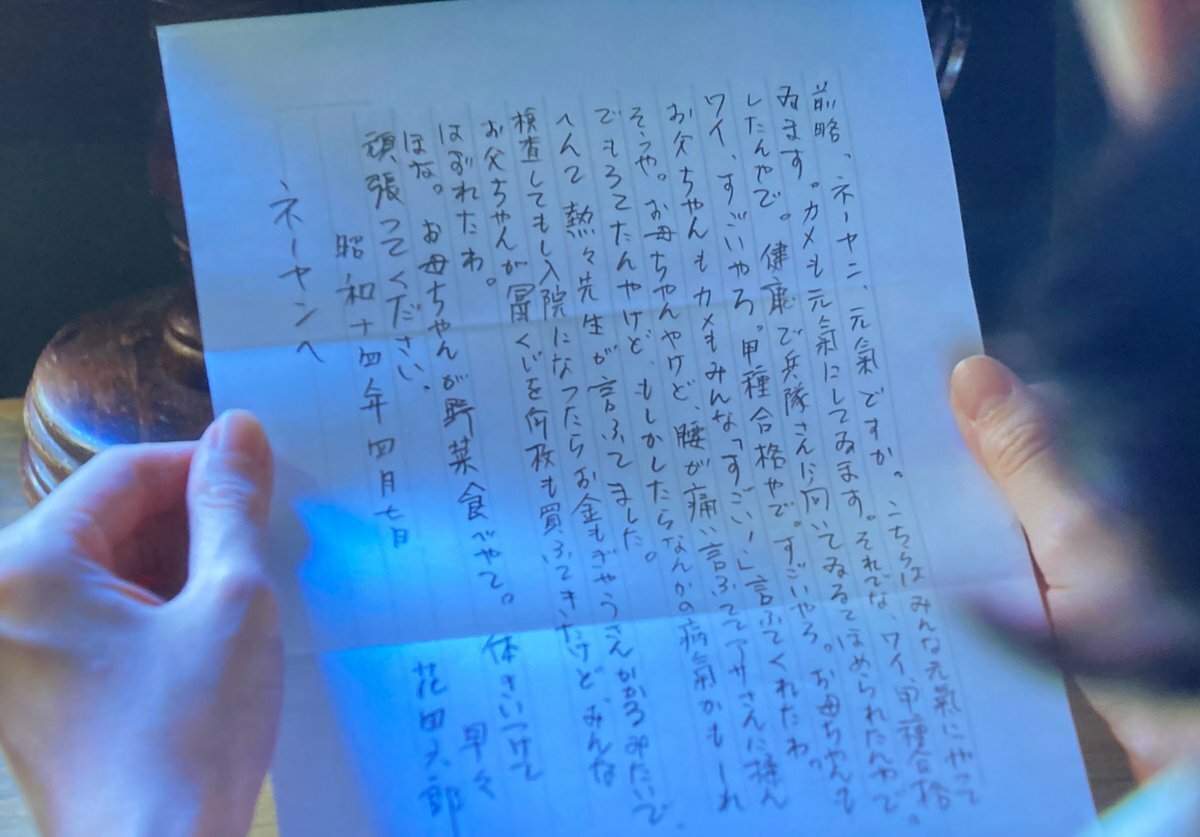 前略、ネーヤン、元氣ですか。こちらはみんな元氣にやって
ゐます。カメも元氣にしてゐます。それでな、ワイ、甲種合格
したんやで。健康で兵隊さんに向いてゐるてほめられたんやで。
ワイ、すごいやろ。甲種合格やで。すごいやろ。お母ちゃんも
お父ちゃんもカメもみんな「すごい!」言ふてくれたわ。
そうや。お母ちゃんやけど、腰が痛い言ふててアサさんに揉ん
でもろてたんやけど、もしかしたらなんかの病氣かもしれ
へんて熱々先生が言ふてました。
検査してもし入院になつたらお金もぎゃうさんかかるみたいで、
お父ちゃんが冨くじを何枚も買ふてきたけど、みんな
はずれたわ。
ほな。お母ちゃんが野菜食べやて。体きいつけて
頑張ってください。 早々
昭和十四年四月七日 花田六郎
ネーヤンへ